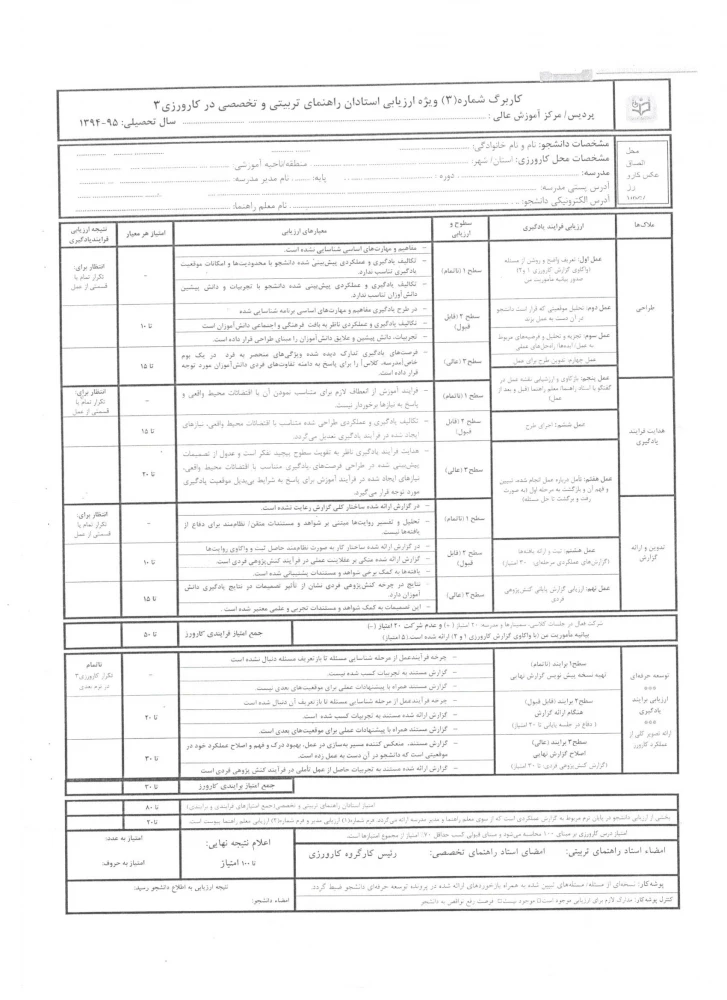 کاربرگ شماره(۳) ویژه ارزیابی استادان راهنمای تربیتی و تخصصی در کارورزی ۳
پردیس/ مرکز آموزش عالی: سال تحصیلی: ۹۵-۱۳۹۴
محل
الصاق
عکس کارو
رز
مشخصات دانشجو: نام و نام خانوادگی:
مشخصات محل کارورزی: استان/ شهر: منطقه/ناحیه آموزشی:
مدرسه: دوره: پایه: نام مدیر مدرسه:
آدرس پستی مدرسه:
آدرس الکترونیکی دانشجو: نام معلم راهنما:
ملاک‌ها
ارزیابی فرایند یادگیری
سطوح و
ارزیابی
معیارهای ارزیابی
امتیاز هر معیار
نتیجه ارزیابی
فرایندیادگیری
طراحی
عمل اول: تعریف واضح و روشن از مسئله
(واکاوی گزارش کارورزی ۱ و۲)
صدور بیانیه ماموریت من
عمل دوم: تحلیل موقعیتی که قرار است دانشجو
در آن دست به عمل بزند
عمل سوم: تجزیه و تحلیل و فرضیه‌های مربوط
به عمل/ ایده‌ها/ راه‌حل‌های عملی
عمل چهارم: تدوین طرح برای عمل
سطح ۱ (ناتمام)
– مفاهیم و مهارت‌های اساسی شناسایی نشده است.
– تکالیف یادگیری و عملکردی پیش‌بینی شده دانشجو با محدودیت‌ها و امکانات موقعیت
یادگیری تناسب ندارد.
– تکالیف یادگیری و عملکردی پیش‌بینی شده دانشجو با تجربیات و دانش پیشین
دانش‌آموزان تناسب ندارد.
–
انتظار برای:
تکرار تمام یا
قسمتی از عمل
سطح ۲ (قابل
قبول)
– در طرح یادگیری مفاهیم و مهارت‌های اساسی برنامه شناسایی شده
– تکالیف یادگیری و عملکردی ناظر به بافت فرهنگی و اجتماعی دانش‌آموزان است
– تجربیات، دانش پیشین و علایق دانش‌آموزان را مبنای طراحی قرار داده است.
تا ۱۰
سطح۳ (عالی)
– فرصت‌های یادگیری تدارک دیده شده ویژگی‌های منحصر به فرد در یک بوم
خاص[مدرسه، کلاس] را برای پاسخ به دامنه تفاوت‌های فردی دانش‌آموزان مورد توجه
قرار داده است.
تا ۱۵
هدایت فرایند
یادگیری
عمل پنجم: بازکاوی و ارزشیابی نقشه عمل در
گفتگو با استاد راهنما/ معلم راهنما (قبل و بعد از
عمل)
عمل ششم: اجرای طرح
عمل هفتم: تأمل درباره عمل انجام شده، تبیین
و فهم آن و بازگشت به مرحله اول (به صورت
رفت و برگشت تا حل مسئله)
سطح ۱ (ناتمام)
– فرایند آموزش از انعطاف لازم برای متناسب نمودن آن با اقتضائات محیط واقعی و
پاسخ به نیازها برخوردار نیست.
–
انتظار برای:
تکرار تمام یا
قسمتی از عمل
سطح ۲ (قابل
قبول)
– تکالیف یادگیری و عملکردی طراحی شده متناسب با اقتضائات محیط واقعی، نیازهای
ایجاد شده در فرآیند یادگیری تعدیل می‌گردد.
تا ۱۵
سطح۳ (عالی)
– هدایت فرآیند یادگیری ناظر به تقویت سطوح پیچید تفکر است و عدول از تصمیمات
پیش‌بینی شده در طراحی فرصت‌های یادگیری متناسب با اقتضائات محیط واقعی،
نیازهای ایجاد شده در فرآیند آموزش برای پاسخ به شرایط بی‌بدیل موقعیت یادگیری
مورد توجه قرار می‌گیرد.
تا ۲۰
تدوین و ارائه
گزارش
عمل هشتم: ثبت و ارائه یافته‌ها
(گزارش‌های عملکردی مرحله‌ای: ۳۰ امتیاز)
عمل نهم: ارزیابی گزارش پایانی کنش‌پژوهی
فردی
سطح ۱ (ناتمام)
– در گزارش ارائه شده ساختار کلی گزارش رعایت نشده است.
– تحلیل و تفسیر روایت‌ها مبتنی بر شواهد و مستندات متقن/ نظام‌مند برای دفاع از
یافته‌ها نیست.
–
انتظار برای:
تکرار تمام یا
قسمتی از عمل
سطح ۲ (قابل
قبول)
– در گزارش ارائه شده ساختار کار به صورت نظام‌مند حاصل ثبت و واکاوی روایت‌ها
– گزارش ارائه شده متکی بر عقلانیت عملی در فرآیند کنش‌پژوهی فردی است.
– یافته‌ها به کمک برخی شواهد و مستندات پشتیبانی شده است.
تا ۱۰
سطح ۳ (عالی)
– نتایج در چرخه کنش‌پژوهی فردی نشان از تأثیر تصمیمات در نتایج یادگیری دانش
آموزان دارد.
– این تصمیمات به کمک شواهد و مستندات تجربی و علمی معتبر شده است.
تا ۱۵
شرکت فعال در جلسات کلاسی، سمینارها و مدرسه: ۲۰ امتیاز و عدم شرکت ۲۰ امتیاز (-)
بیانیه مأموریت من (با واکاوی گزارش کارورزی ۱ و ۲) ارائه شده است.(۵ امتیاز)
جمع امتیاز فرایندی کارورز
تا ۵۰
توسعه حرفه‌ای
***
ارزیابی برایند
یادگیری
***
ارائه تصویر کلی از
عملکرد کارورز
سطح۱ برایند (ناتمام)
تهیه نسخه پیش نویس گزارش نهایی
– چرخه فرآیندعمل از مرحله شناسایی مسئله تا بازتعریف مسئله دنبال نشده است
– گزارش مستند به تجربیات کسب شده نیست.
– گزارش مستند همراه با پیشنهادات عملی برای موقعیت‌های بعدی نیست.
–
ناتمام
تکرار کارورزی۳
در ترم بعدی
سطح۲ برایند (قابل قبول)
هنگام ارائه گزارش
( دفاع در جلسه پایانی تا ۲۰ امتیاز)
– چرخه فرآیندعمل از مرحله شناسایی مسئله تا بازتعریف آن دنبال شده است
– گزارش ارائه شده مستند به تجربیات کسب شده است.
– گزارش مستند همراه با پیشنهادات عملی برای موقعیت‌های بعدی است.
تا ۲۰
سطح۳ برایند (عالی)
اصلاح گزارش نهایی
(گزارش کنش‌پژوهی فردی: تا ۳۰ امتیاز)
– گزارش مستند، منعکس کننده مسیر به‌سازی در عمل، بهبود درک و فهم و اصلاح عملکرد خود در
موقعیتی است که دانشجو در آن دست به عمل زده است.
– گزارش ارائه شده مستند به تجربیات حاصل از عمل تأملی در فرآیند کنش پژوهی فردی است
تا ۳۰
جمع امتیاز برایندی کارورز
تا ۳۰
امتیاز استادان راهنمای تربیتی و تخصصی(جمع امتیازهای فرایندی و برایندی)
تا ۸۰
بخشی از ارزیابی دانشجو در پایان ترم مربوط به گزارش عملکردی است که از سوی معلم راهنما و مدیر مدرسه ارائه می‌گردد. فرم شماره(۱) ارزیابی مدیر و فرم شماره(۲) ارزیابی معلم راهنما پیوست است.
تا۲۰
امتیاز درس کارورزی بر مبنای ۱۰۰ محاسبه می‌شود و مبنای قبولی کسب حداقل ۷۰٪ امتیاز از مجموع امتیازها است.
امضاء استاد راهنمای تربیتی: امضای استاد راهنمای تخصصی: رئیس کارگروه کارورزی
اعلام نتیجه نهایی:
تا ۱۰۰ امتیاز
امتیاز به عدد:
امتیاز به حروف:
پوشه‌کار: نسخه‌ای از مسئله/ مسئله‌های تبیین شده به همراه بازخوردهای ارائه شده در پرونده توسعه حرفه‌ای دانشجو ضبط گردد.
کنترل پوشه‌کار: مدارک لازم برای ارزیابی موجود است□ موجود نیست□ فرصت رفع نواقص به دانشجو
نتیجه ارزیابی به اطلاع دانشجو رسید:
امضاء دانشجو: